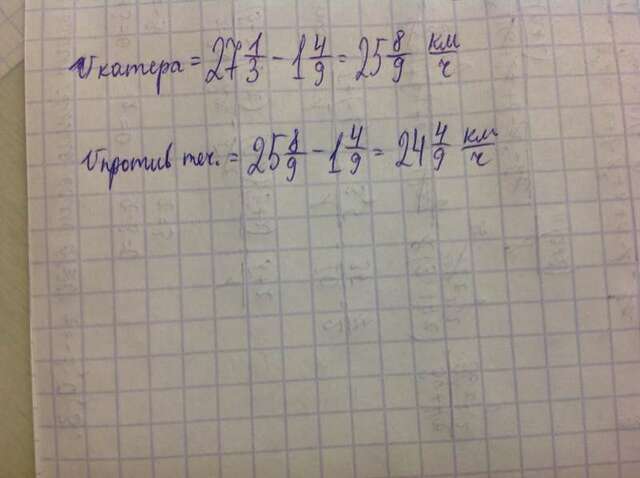 v катера = 27 1/3 - 1 4/9 = 25 8/9 км/ч
v против теч. = 25 8/9 - 1 4/9 = 24 4/9 км/ч